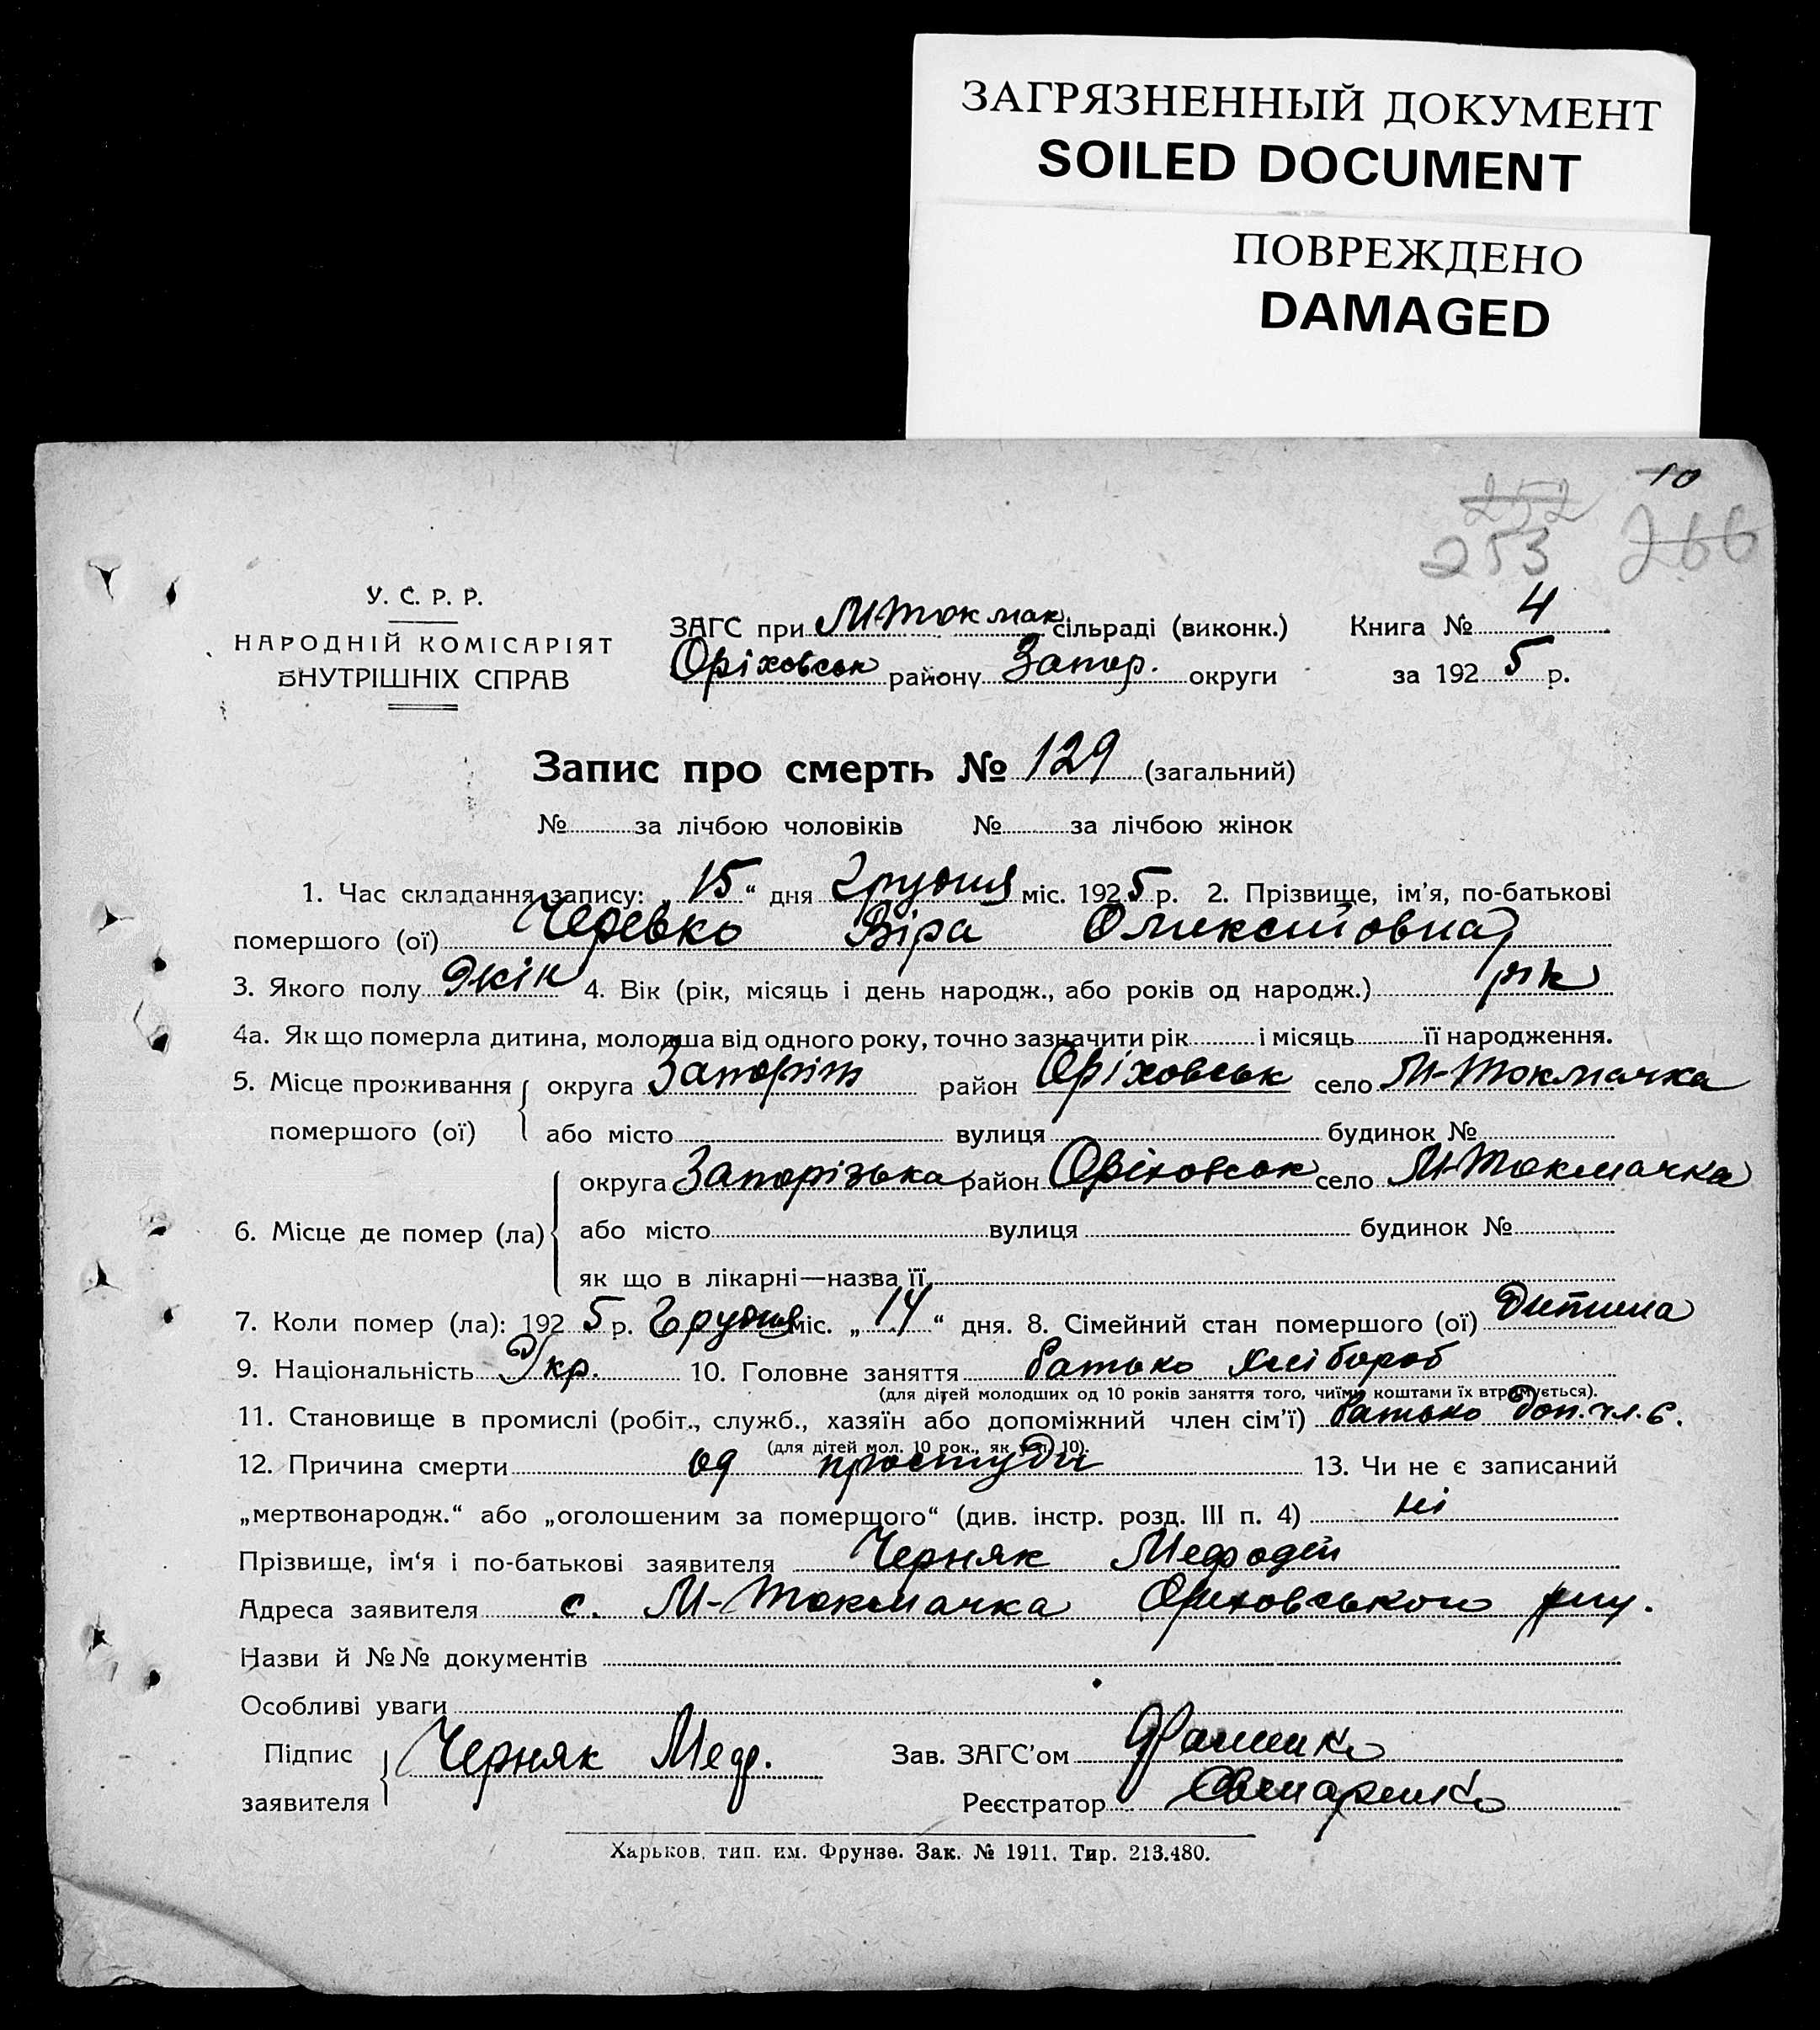 ЗАГРЯЗНЕННЫЙ ДОКУМЕНТ
SOILED DOCUMENT
ПОВРЕЖДЕНО
DAMAGED
10
252
253 266
У. С. Р. Р.
НАРОДНІЙ КОМІСАРІЯТ
ВНУТРІШНІХ СПРАВ
ЗАГС при М-Токмак сільраді (виконк.) Книга № 4
Оріховськ району Запор. округи за 1925 р.
Запис про смерть № 129 (загальний)
№ за лічбою чоловіків № за лічбою жінок
1. Час складання запису: „15“ дня Грудня міс. 1925 р. 2. Прізвище, ім'я, по-батькові
помершого (ої) Черевко Віра Олексіїовна
3. Якого полу Жін 4. Вік (рік, місяць і день народж., або років од народж.) рік
4а. Як що померла дитина, молодша від одного року, точно зазначити рік і місяць її народження.
5. Місце проживання помершого (ої) округа Запоріж район Оріховськ село М-Токмачка
або місто вулиця будинок №
6. Місце де помер (ла) округа Запорізька район Оріховськ село М-Токмачка
або місто вулиця будинок №
як що в лікарні—назва її
7. Коли помер (ла): 1925 р. Грудня міс. „14“ дня. 8. Сімейний стан помершого (ої) Дитина
9. Національність Укр. 10. Головне заняття батько хлібороб
(для дітей молодших од 10 років заняття того, чиїми коштами їх втримується).
11. Становище в промислі (робіт., служб., хазяїн або допоміжний член сім'ї) батько Доп. чл. с.
(для дітей мол. 10 рок., як у п. 10).
12. Причина смерти од простуди 13. Чи не є записаний
„мертвонародж.“ або „оголошеним за померщого“ (див. інстр. розд. III п. 4) ні
Прізвище, ім'я і по-батькові заявителя Черняк Мефодій
Адреса заявителя с. М-Токмачка Оріховського
Назви й №№ документів
Особливі уваги
Підпис заявителя Черняк Меф. Зав. ЗАГС'ом
Реєстратор
Харьков, тип. им. Фрунзе. Зак. № 1911. Тир. 213.480.